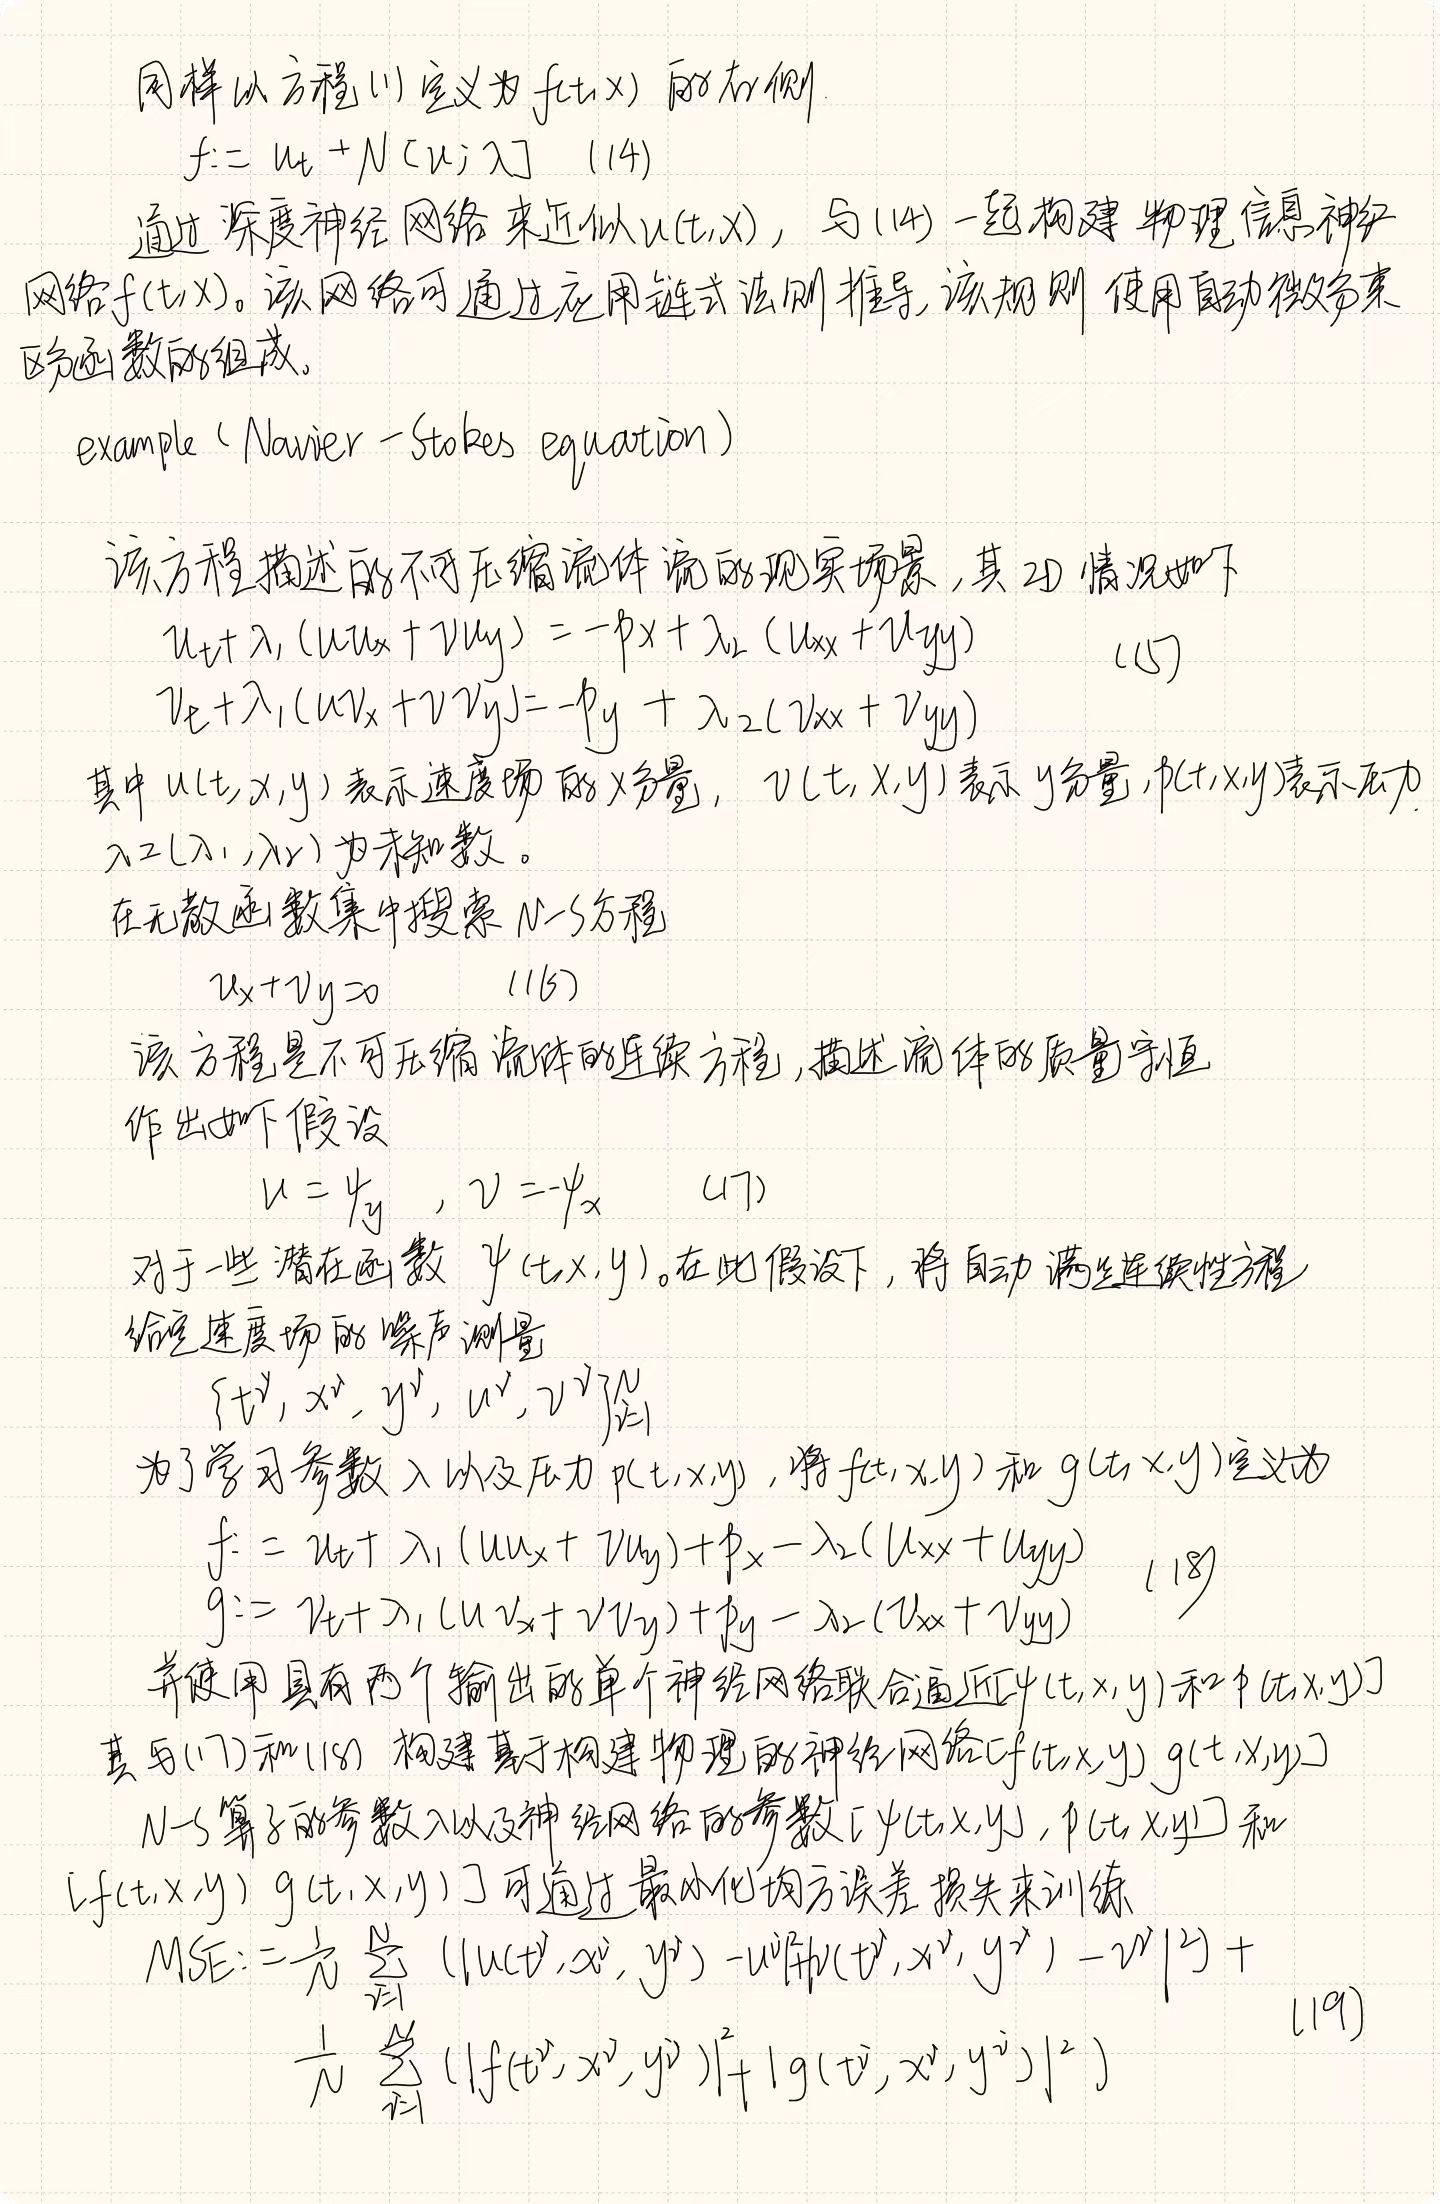 同样以方程(1)定义为f(t,x)的右侧.
f:= u_t + N[u;λ] (14)
通过深度神经网络来近似u(t,x)，与(14)一起构建物理信息神经
网络f(t,x)。该网络可通过应用链式法则推导，该规则使用自动微分来
区分函数的组成。
example (Navier-Stokes equation)
该方程描述的不可压缩流体流的现实场景，其2D情况如下
u_t+λ_1(uu_x+vu_y)=-p_x+λ_2(u_xx+u_yy)
(15)
v_t+λ_1(uv_x+vv_y)=-p_y+λ_2(v_xx+v_yy)
其中u(t,x,y)表示速度场的x分量，v(t,x,y)表示y分量，p(t,x,y)表示压力.
λ=(λ_1,λ_2)为未知数。
在无散函数集中搜索N-S方程
u_x+v_y=0 (16)
该方程是不可压缩流体的连续方程，描述流体的质量守恒
作出如下假设
u=ψ_y , v=-ψ_x (17)
对于一些潜在函数ψ(t,x,y)。在此假设下，将自动满足连续性方程
给定速度场的噪声测量
{t^i, x^i, y^i, u^i, v^i}_{i=1}^N
为了学习参数λ以及压力p(t,x,y)，将f(t,x,y)和g(t,x,y)定义为
f:=u_t+λ_1(uu_x+vu_y)+p_x-λ_2(u_xx+u_yy)
(18)
g:=v_t+λ_1(uv_x+vv_y)+p_y-λ_2(v_xx+v_yy)
并使用具有两个输出的单个神经网络联合逼近[ψ(t,x,y)和p(t,x,y)]
其与(17)和(18)构建基于构建物理的神经网络[f(t,x,y) g(t,x,y)]
N-S算子的参数λ以及神经网络的参数[ψ(t,x,y),p(t,x,y)]和
[f(t,x,y) g(t,x,y)]可通过最小化均方误差损失来训练
MSE:=1/N Σ_{i=1}^N (|u(t^i,x^i,y^i)-u^i|^2+|v(t^i,x^i,y^i)-v^i|^2)+
(19)
1/N Σ_{i=1}^N (|f(t^i,x^i,y^i)|^2+|g(t^i,x^i,y^i)|^2)